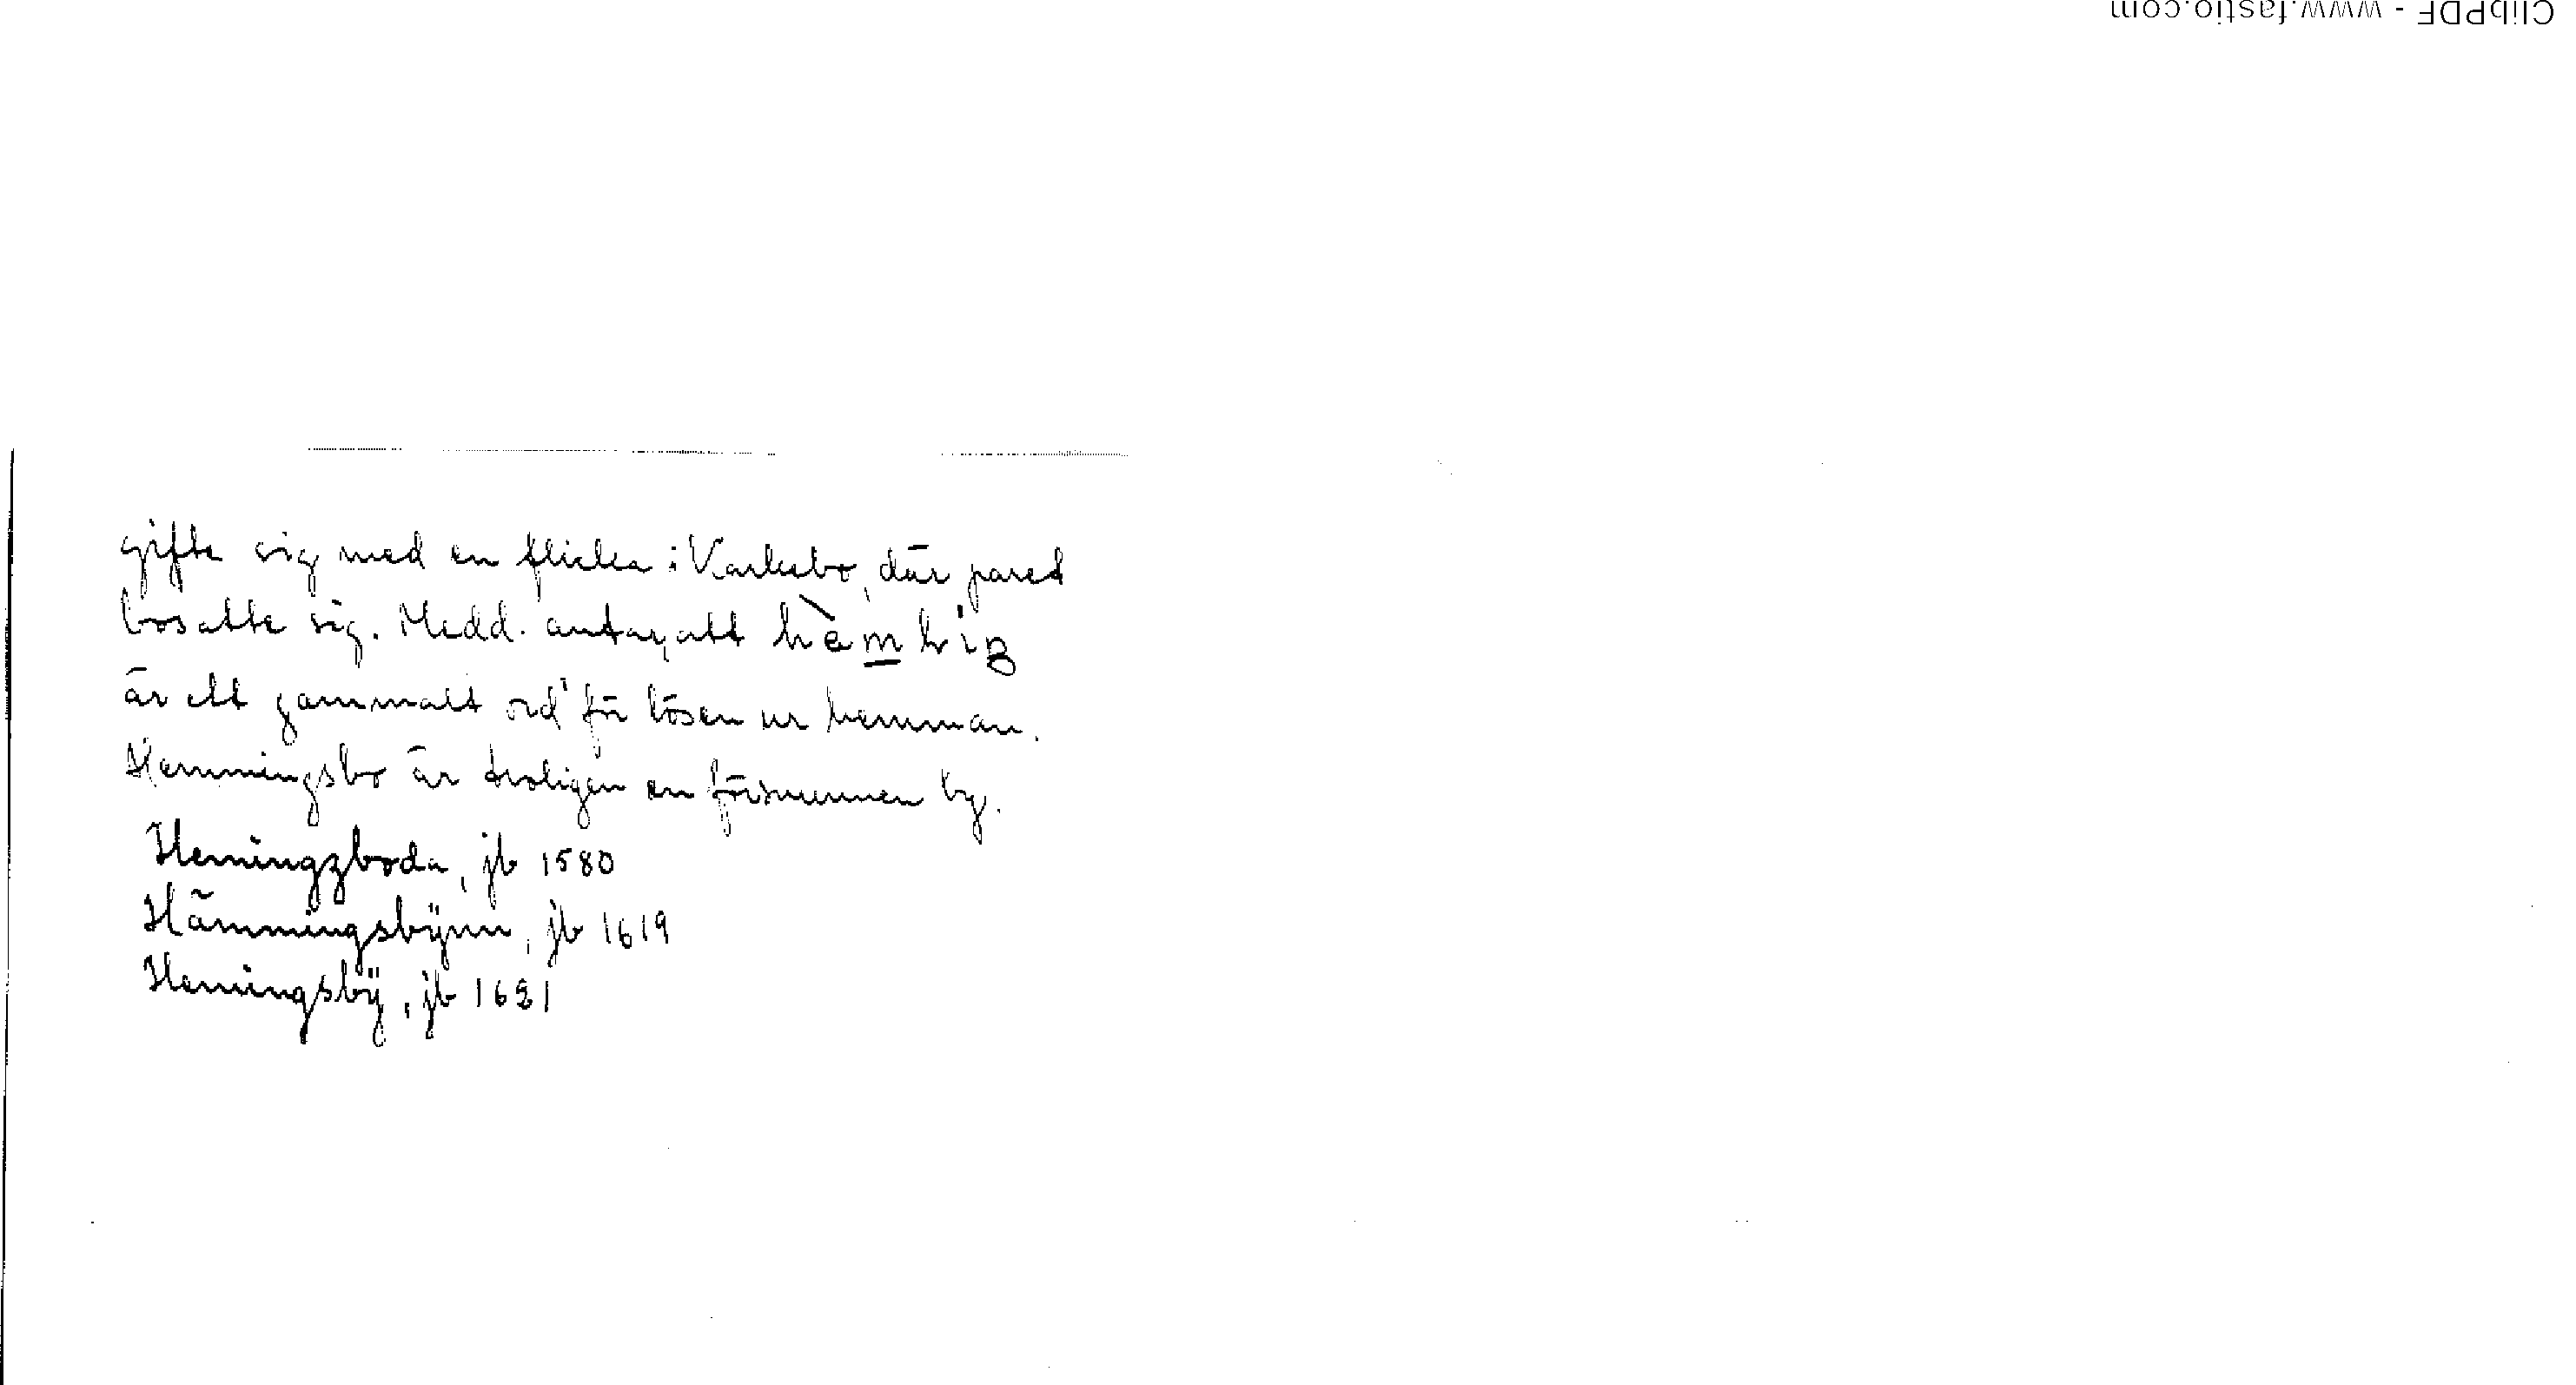 ClibPDF - www.fastio.com
gifte sig med en flicka i Karlsbo, där paret
bosatte sig. Medd. antag, att
är ett gammalt ord för lösen ur hemman.
Hemmingsbo är troligen en försvunnen by.
Hemingzboda, jb 1580
Hämmingsbÿnn, jb 1619
Hemingsbÿ, jb 1621